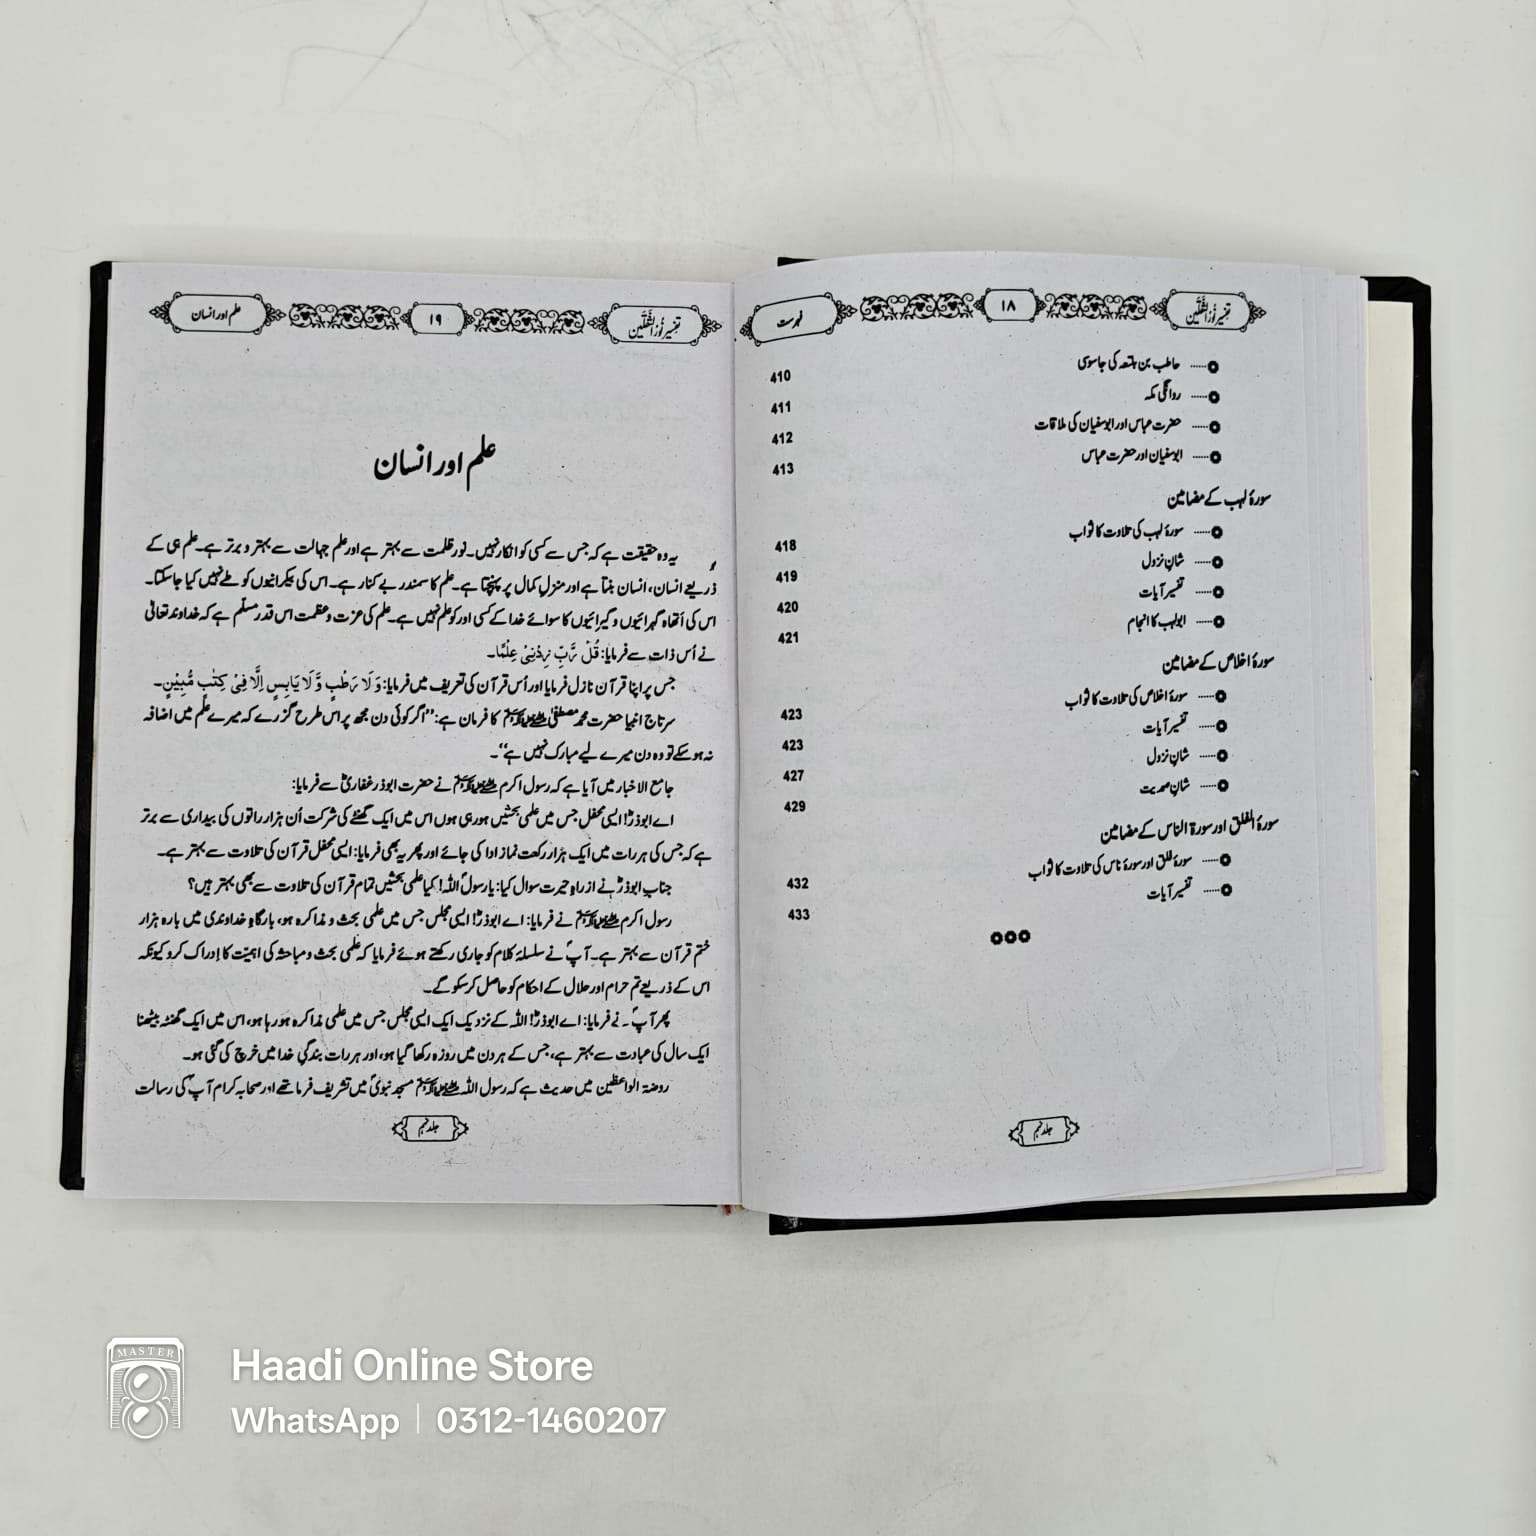 تفسیر نُورُالثَّقَلَین
۱۸
فہرست
حاطب بن بلتعہ کی جاسوسی 410
روانگی مکہ 411
حضرت عباس اور ابوسفیان کی ملاقات 412
ابوسفیان اور حضرت عباس 413
سورۂ لہب کے مضامین
سورۂ لہب کی تلاوت کا ثواب 418
شانِ نزول 419
تفسیر آیات 420
ابولہب کا انجام 421
سورۂ اخلاص کے مضامین
سورۂ اخلاص کی تلاوت کا ثواب 423
تفسیر آیات 423
شانِ نزول 427
شانِ صمدیت 429
سورۂ الفلق اور سورۃ الناس کے مضامین
سورۂ فلق اور سورۂ ناس کی تلاوت کا ثواب 432
تفسیر آیات 433
جلد نہم
تفسیر نُورُالثَّقَلَین
۱۹
علم اور انسان
علم اور انسان
یہ وہ حقیقت ہے کہ جس سے کسی کو انکار نہیں۔ نور ظلمت سے بہتر ہے اور علم جہالت سے بہتر و برتر ہے۔ علم ہی کے
ذریعے انسان، انسان بنتا ہے اور منزلِ کمال پر پہنچتا ہے۔ علم کا سمندر بے کنار ہے۔ اس کی بیکرانیوں کو طے نہیں کیا جاسکتا۔
اس کی اَتھاہ گہرائیوں و گیرائیوں کا سوائے خدا کے کسی اور کو علم نہیں ہے۔ علم کی عزت و عظمت اس قدر مسلّم ہے کہ خداوند تعالیٰ
نے اُس ذات سے فرمایا: قُلْ رَّبِّ زِدْنِیْ عِلْمًا۔
جس پر اپنا قرآن نازل فرمایا اور اُس قرآن کی تعریف میں فرمایا: وَلَا رَطْبٍ وَّلَا یَابِسٍ اِلَّا فِیْ کِتٰبٍ مُّبِیْنٍ۔
سرتاج انبیا حضرت محمد مصطفیٰ ﷺ کا فرمان ہے: "اگر کوئی دن مجھ پر اس طرح گزرے کہ میرے علم میں اضافہ
نہ ہوسکے تو وہ دن میرے لیے مبارک نہیں ہے"۔
جامع الاخبار میں آیا ہے کہ رسول اکرم ﷺ نے حضرت ابوذر غفاریؓ سے فرمایا:
اے ابوذرؓ! ایسی محفل جس میں علمی بحثیں ہو رہی ہوں اس میں ایک گھنٹے کی شرکت اُن ہزار راتوں کی بیداری سے برتر
ہے کہ جس کی ہر رات میں ایک ہزار رکعت نماز ادا کی جائے اور پھر یہ بھی فرمایا: ایسی محفل قرآن کی تلاوت سے بہتر ہے۔
جناب ابوذرؓ نے از راہِ حیرت سوال کیا: یا رسول اللہ! کیا علمی بحثیں تمام قرآن کی تلاوت سے بھی بہتر ہیں؟
رسول اکرم ﷺ نے فرمایا: اے ابوذرؓ! ایسی مجلس جس میں علمی بحث و مذاکرہ ہو، بارگاہِ خداوندی میں بارہ ہزار
ختم قرآن سے بہتر ہے۔ آپؐ نے سلسلۂ کلام کو جاری رکھتے ہوئے فرمایا کہ علمی بحث و مباحثہ کی اہمیّت کا اِدراک کرو کیونکہ
اس کے ذریعے تم حرام اور حلال کے احکام کو حاصل کر سکو گے۔
پھر آپؐ ۔ نے فرمایا: اے ابوذرؓ! اللہ کے نزدیک ایک ایسی مجلس جس میں علمی مذاکرہ ہو رہا ہو، اس میں ایک گھنٹہ بیٹھنا
ایک سال کی عبادت سے بہتر ہے، جس کے ہر دن میں روزہ رکھا گیا ہو، اور ہر رات بندگیِ خدا میں خرچ کی گئی ہو۔
روضۃ الواعظین میں حدیث ہے کہ رسول اللہ ﷺ مسجد نبویؐ میں تشریف فرما تھے اور صحابہ کرام آپؐ کی رسالت
جلد نہم
MASTER
Haadi Online Store
WhatsApp | 0312-1460207